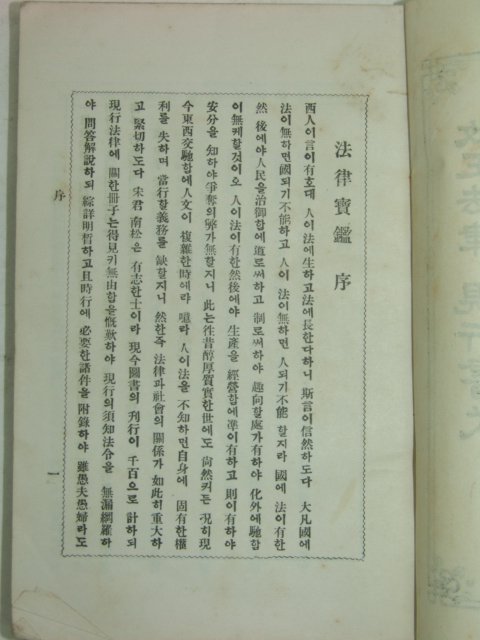 法律寶鑑序
西人이言이有호대 人이法에生하고法에長한다하니 斯言이信然하도다 大凡國에
法이無하면國되기不能하고 人이 法이無하면 人되기不能 할지라 國에 法이有한
然 後에야人民을治御함에道로써하고 制로써하야 趣向할處가有하야 化外에馳함
이無케할것이오 人이法이有한然後에야 生產을 經營함에準이有하고 則이有하야
安分을 知하야爭奪의弊가無할지니 此는徃昔醇厚質實한世에도 尙然커든 况히現
今東西交馳함에人文이 複雜한時에랴 噫라 人이法을 不知하면自身에 固有한權
利를 失하며 當行할義務를 缺할지니 然한즉 法律과社會의 關係가 如此히重大하
고 緊切하도다 宋君 南松은 有志한士이라 現今圖書의 刊行이 千百으로 計하되
現行法律에 關한冊子는得見키無由함을慨歎하야 現行의須知法令을 無漏網羅하
야 問答解說하되 綜詳明晳하고且時行에 必要한諸件을 附錄하야 雖愚夫愚婦라도
序
一